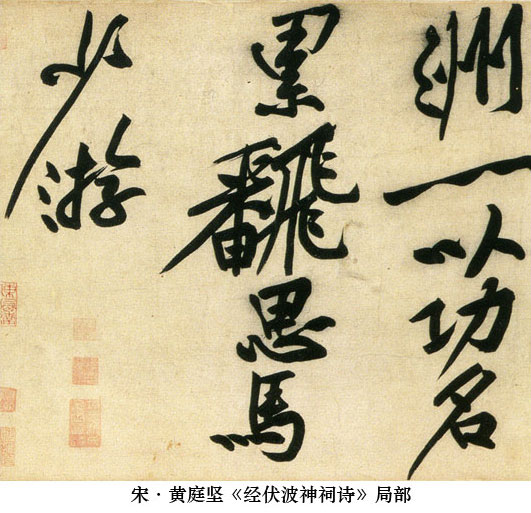 洲一以功名
累飜思馬
少游
宋·黄庭坚《经伏波神祠诗》局部